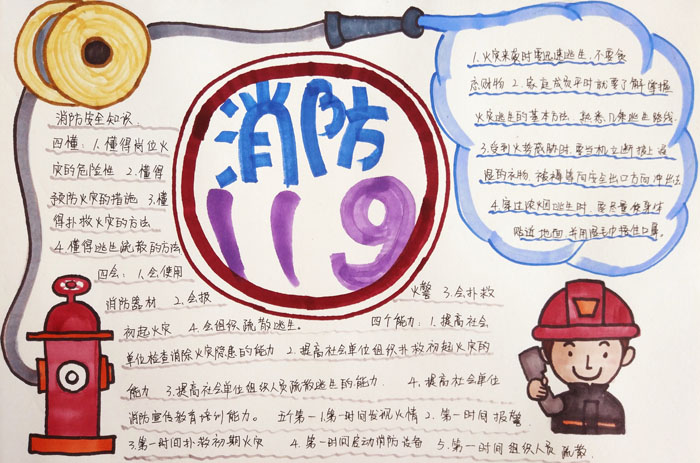 消防
119
消防安全知识
四懂：1.懂得岗位火
灾的危险性 2.懂得
预防火灾的措施 3.懂
得扑救火灾的方法
4.懂得逃生疏散的方法
四会：1.会使用
消防器材 2.会报 火警 3.会扑救
初起火灾 4.会组织疏散逃生。 四个能力：1.提高社会
单位检查消除火灾隐患的能力 2.提高社会单位组织扑救初起火灾的
能力 3.提高社会单位组织人员疏散逃生的能力. 4.提高社会单位
消防宣传教育培训能力。 五个第一 1.第一时间发现火情 2.第一时间报警
3.第一时间扑救初期火灾 4.第一时间启动消防设备 5.第一时间组织人员疏散.
1.火灾来袭时要迅速逃生,不要贪
恋财物 2.家庭成员平时就要了解掌握
火灾逃生的基本方法,熟悉几条逃生路线
3.受到火势威胁时,要当机立断披上浸
湿的衣物、被褥等向安全出口方向冲出去
4.穿过浓烟逃生时,要尽量使身体
贴近地面,并用湿毛巾捂住口鼻.